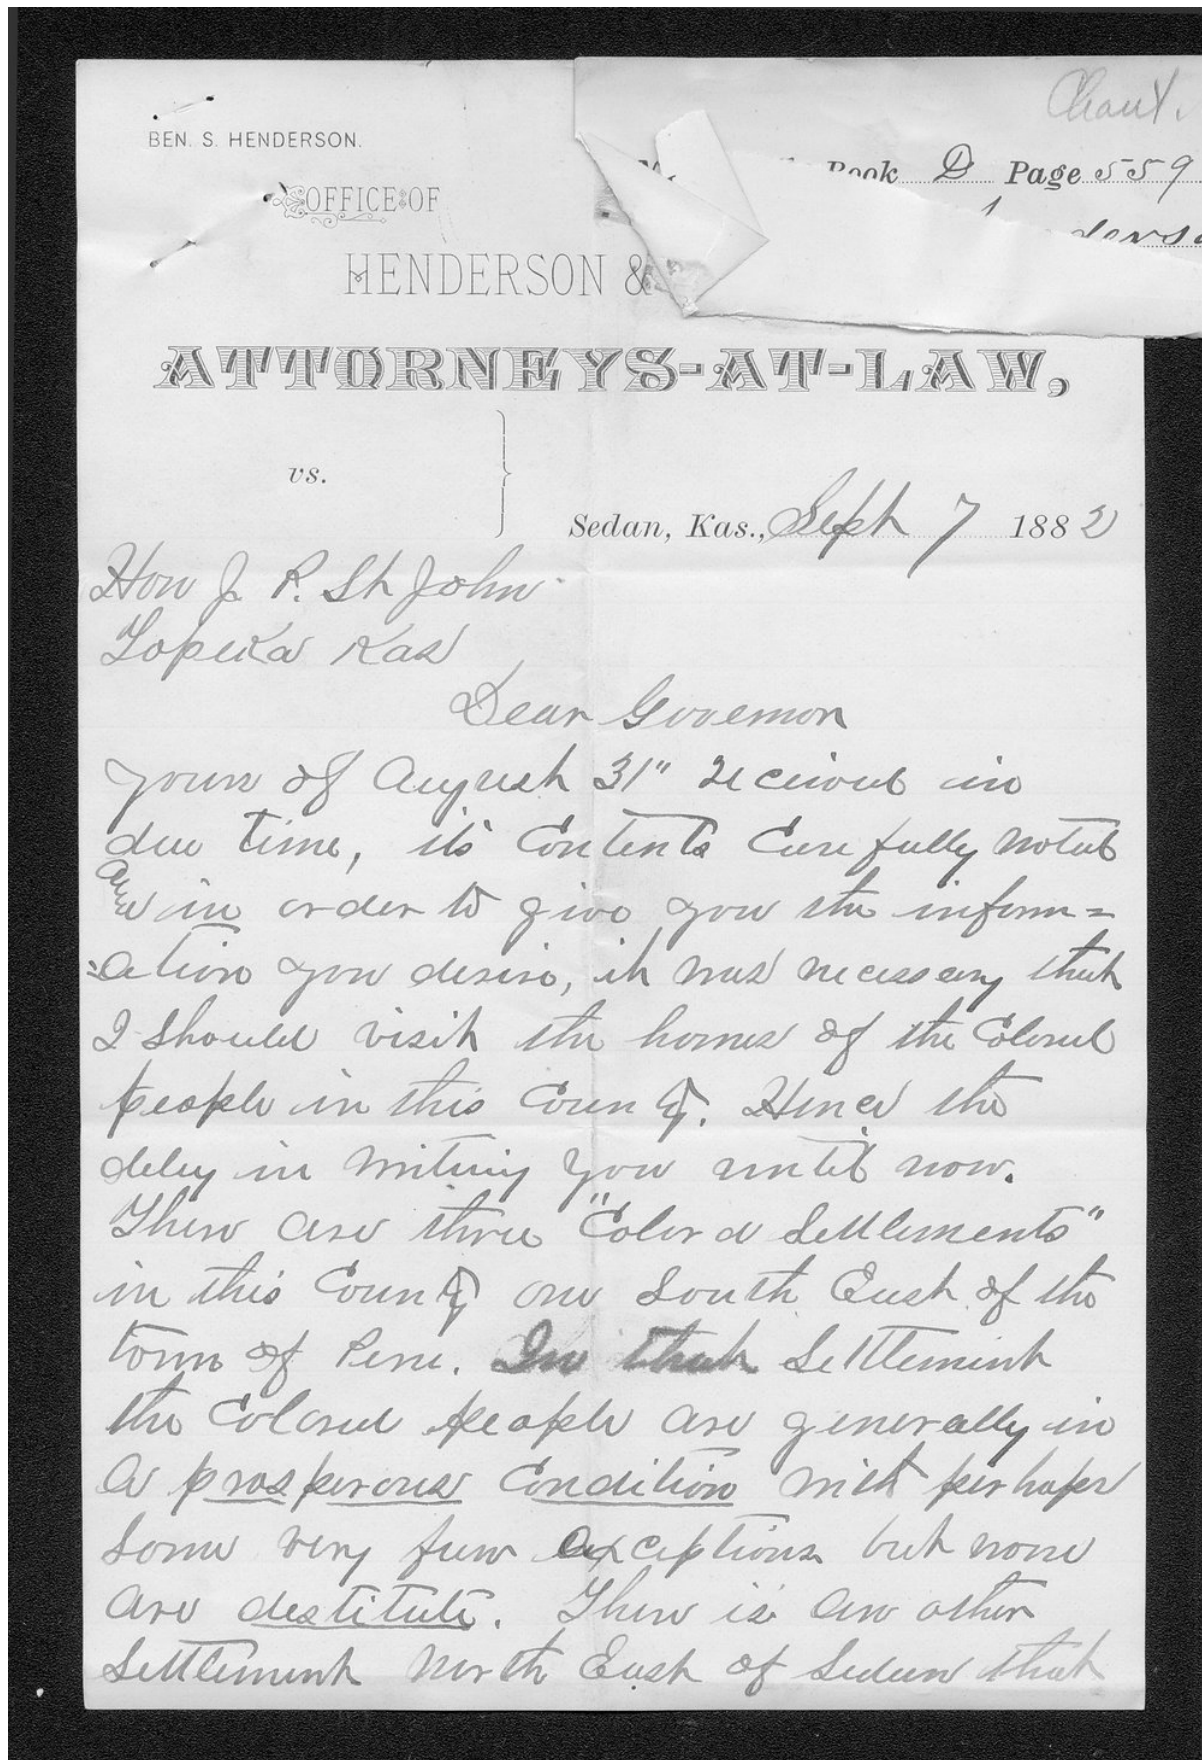 Chaut.
Book D Page 559
BEN. S. HENDERSON.
OFFICE OF
HENDERSON &
ATTORNEYS-AT-LAW,
vs.
Sedan, Kas., Sept 7 1882
Hon J. P. St John
Topeka Kas
Dear Governor
yours of August 31" received in
due time, its Contents Carefully noted
and in order to give you the inform=
=ation you desire, it was necessary that
I should visit the homes of the Colored
people in this County. Hence the
delay in writing you until now.
There are three "Colord Settlements"
in this County one South East of the
town of Peru. In that Settlement
the Colored people are generally in
a prosperous Condition with perhaps
some very few exceptions but none
are destitute. There is an other
Settlement North East of Sedan that